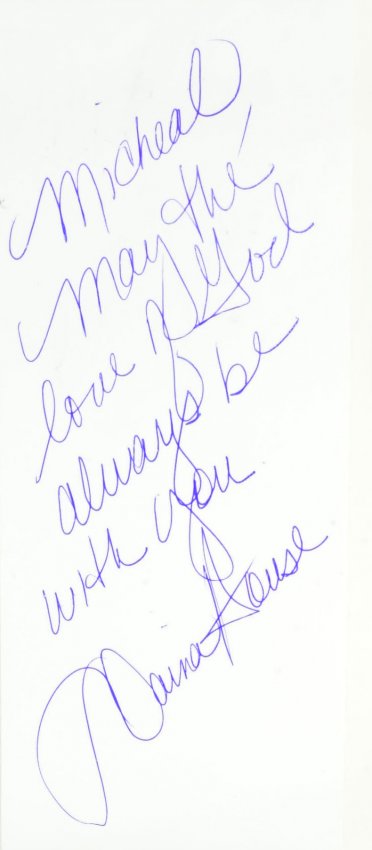 Micheal,
May the
love of God
always be
with you